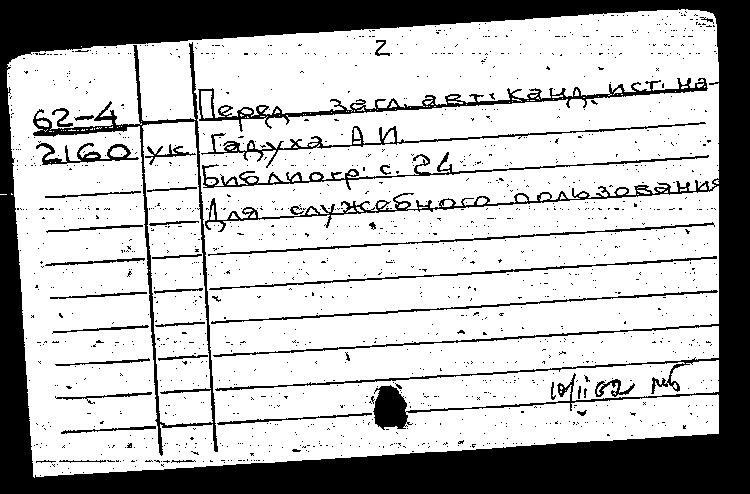 2
62-4 Перед загл. авт: канд. ист. на-
2160 ук Гадуха А И.
Библиогр: с. 24
Для служебного пользования
10/II 62